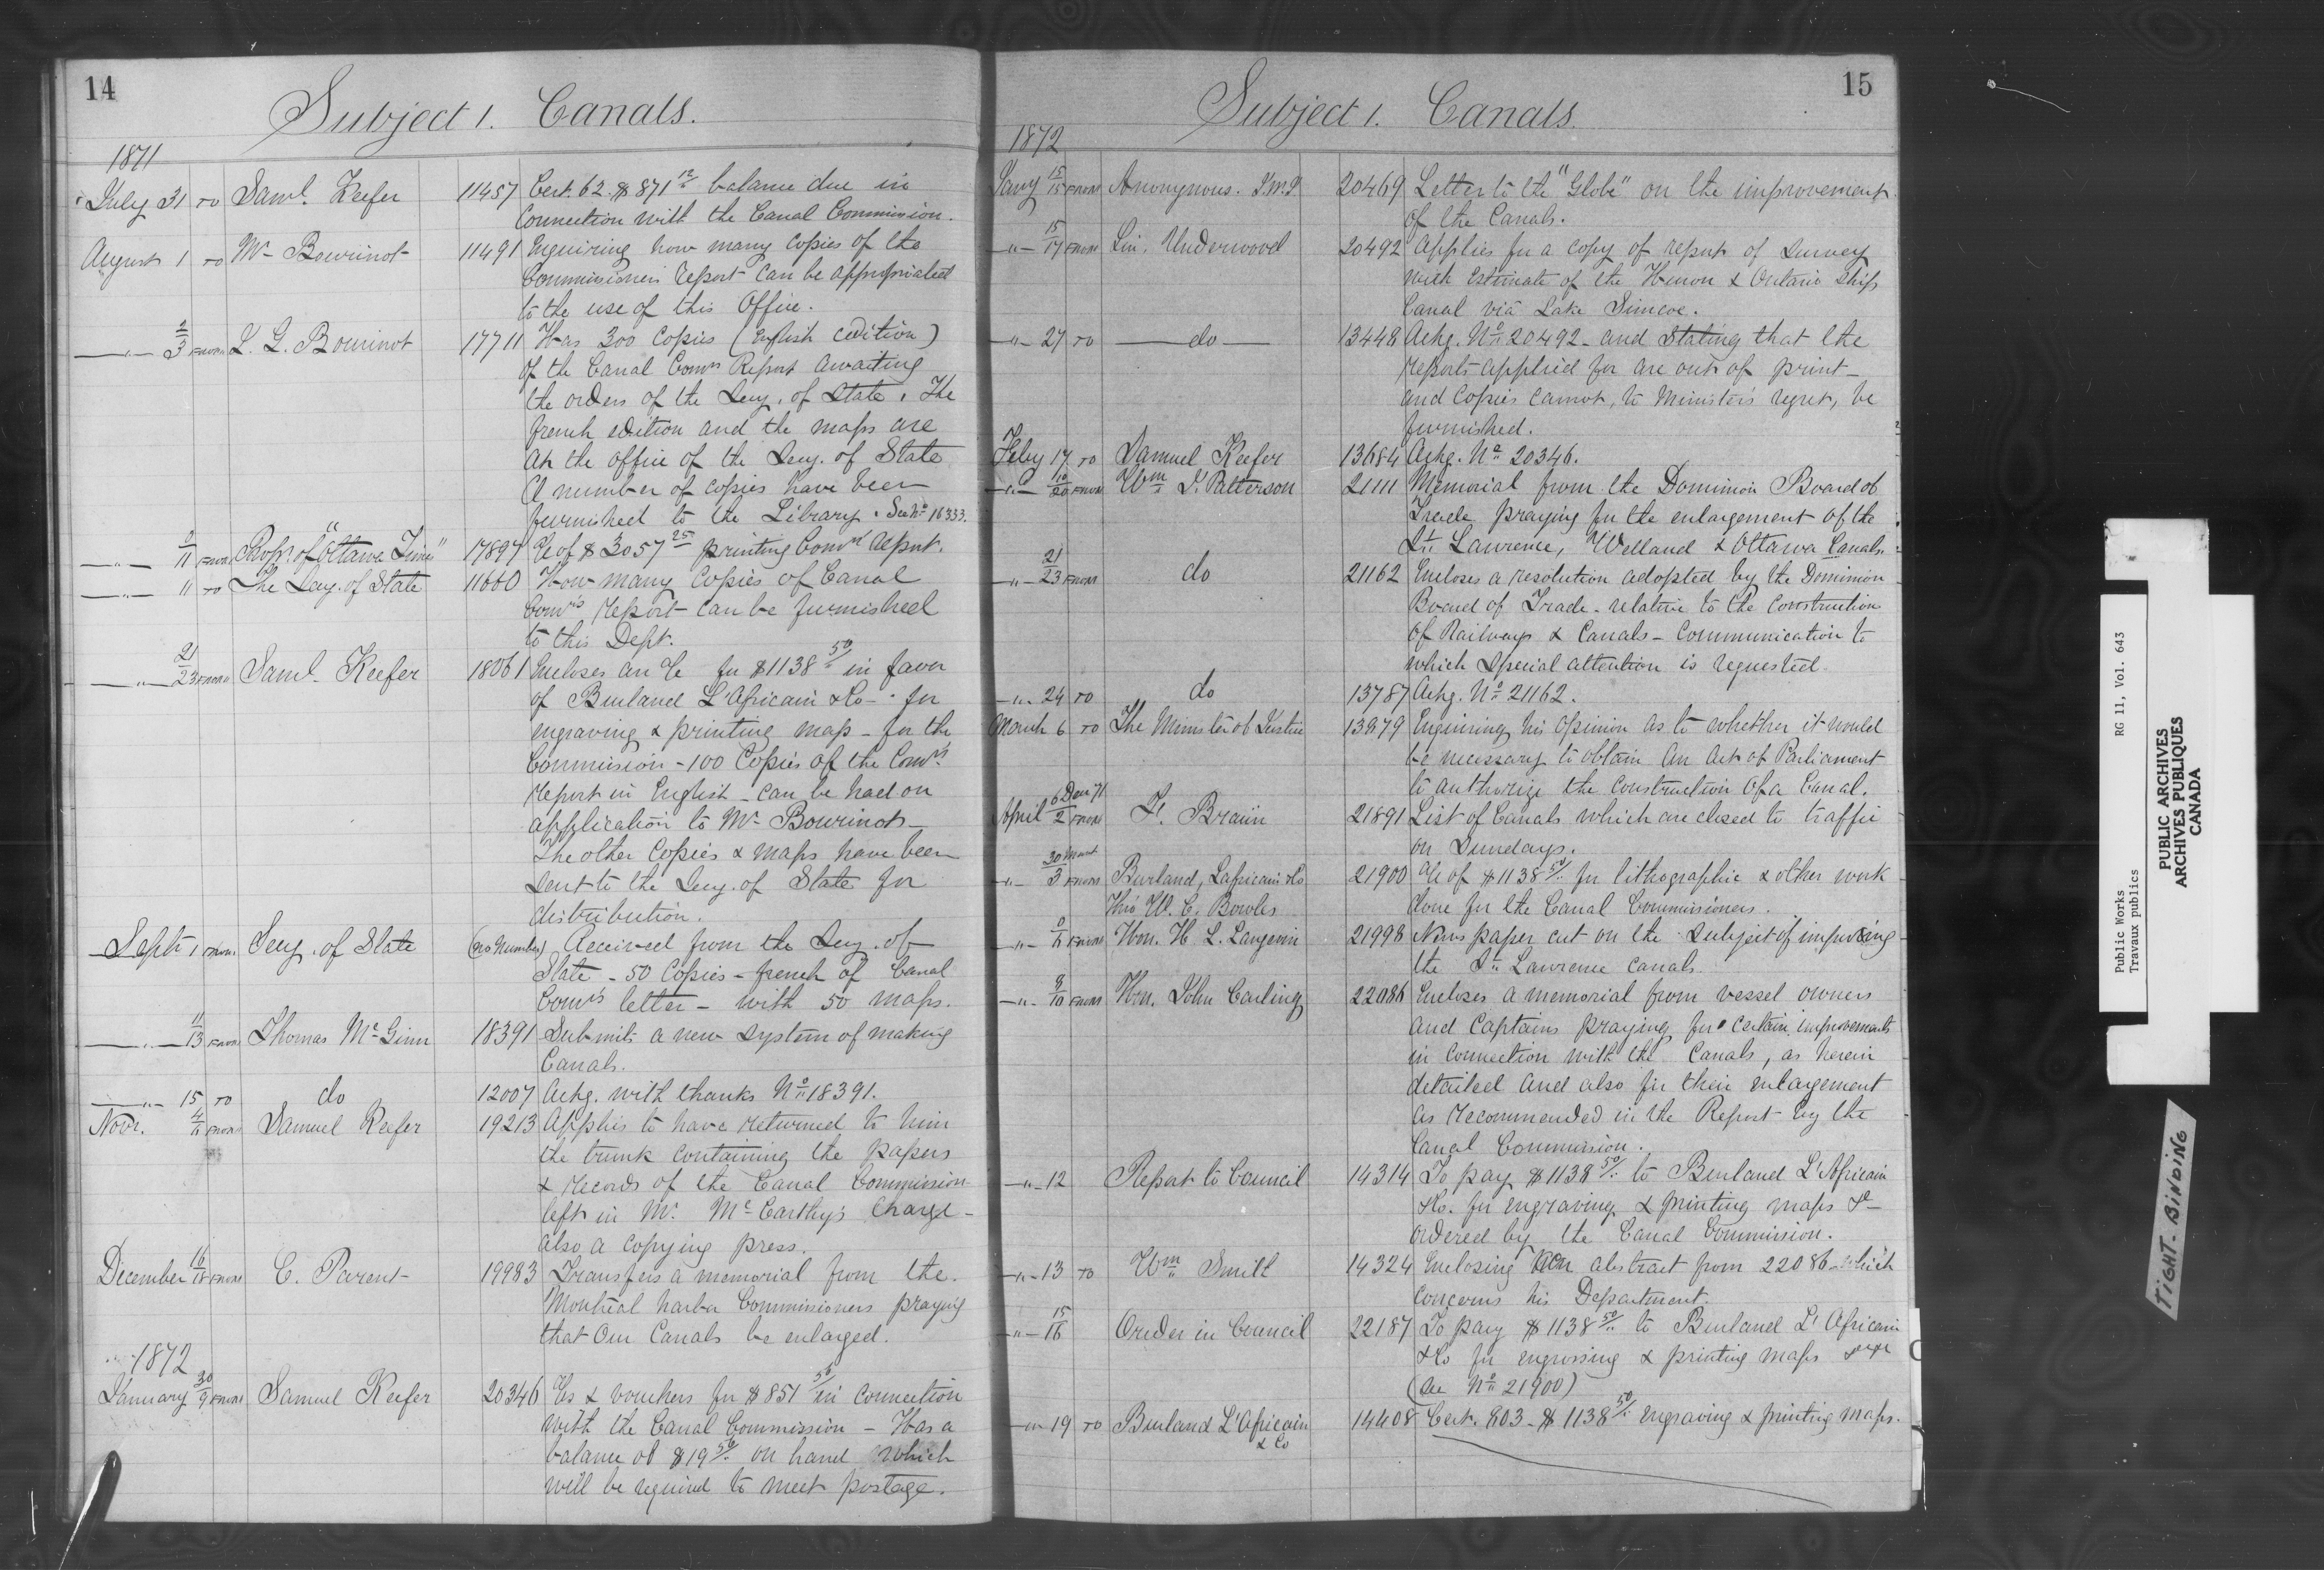 14
Subject 1. Canals.
1871
July 31 TO Saml. Keefer 11457 Cert. 62. $871 12/ balance due in
Connection with the Canal Commission.
August 1 TO Mr Bourinot 11491 Enquiring how many Copies of the
Commissioners report can be appropriated
to the use of this Office.
" 2/3 FROM J. G. Bourinot 17711 Has 300 Copies (English Edition)
of the Canal Comrs Report awaiting
the orders of the Secy. of State. The
french edition and the maps are
At the office of the Secy. of State
A number of copies have been
furnished to the Library. See No 16333.
" 11 FROM Propr. of "Ottawa Times" 17897 a/c of $3057 25 printing Comrs report.
" 11 TO The Secy. of State 11660 How many Copies of Canal
Comrs report can be furnished
to this Dept.
" 21/23 FROM Saml. Keefer 18061 Encloses an a/c for $1138 50/ in favor
of Burland L'Africain & Co - for
engraving & printing map - for the
Commission - 100 Copies of the Comrs
report in English - can be had on
application to Mr Bourinot -
The other Copies & maps have been
sent to the Secy. of State for
distribution.
Septr 1 FROM Secy. of State (no Number) Received from the Secy. of
State - 50 Copies - french of Canal
Comrs letter - with 50 maps.
" 11/13 FROM Thomas McGinn 18391 Submits a new system of making
Canals.
" 15 TO do 12007 Ackg. with thanks No 18391.
Novr. 4/6 FROM Samuel Keefer 19213 Applies to have returned to him
the trunk containing the papers
& records of the Canal Commission
left in Mr. McCarthy's Charge -
also a copying press.
December 16/18 FROM C. Parent 19983 Transfers a memorial from the
Montreal harbor Commissioners praying
that Our Canals be enlarged.
1872
January 30/9 FROM Samuel Keefer 20346 a/cs & vouchers for $851 50/ in connection
with the Canal Commission - Has a
balance of $19 50/ on hand which
will be required to meet postage.
15
Subject 1. Canals.
1872
Jany 15/15 FROM Anonymous. 20469 Letter to the "Globe" on the improvement
of the Canals.
" 15/17 FROM Lin. Underwood 20492 Applies for a copy of report of Survey
with Estimate of the Huron & Ontario Ship
Canal via Lake Simcoe.
" 27 TO do 13448 Ackg. No 20492 - and Stating that the
reports applied for are out of print -
and Copies cannot, to Minister's regret, be
furnished.
Feby 17 TO Samuel Keefer 13684 Ackg. No 20346.
" 10/20 FROM Wm J. Patterson 21111 Memorial from the Dominion Board of
Trade praying for the enlargement of the
St. Lawrence, Welland & Ottawa Canals.
" 21/23 FROM do 21162 Encloses a resolution adopted by the Dominion
Board of Trade - relative to the construction
of Railways & Canals - Communication to
which special attention is requested.
" 24 TO do 13787 Ackg. No 21162.
March 6 TO The Minister of Justice 13879 Enquiring his opinion as to whether it would
be necessary to obtain An Act of Parliament
to authorize the construction of a Canal.
April 6 Decr 71/2 FROM F. Braun 21891 List of Canals which are closed to traffic
on Sundays.
" 30 March/3 FROM Burland, Lafricain & Co 21900 a/c of $1138 50/ for lithographic & other work
Thro W. C. Bowles done for the Canal Commissioners.
" 6 FROM Hon. H. L. Langevin 21998 News paper cut on the subject of improving
the St. Lawrence canals.
" 9/10 FROM Hon. John Carling 22086 Encloses a memorial from vessel owners
and Captains praying for certain improvements
in Connection with the Canals, as herein
detailed and also for their enlargement
as recommended in the Report by the
Canal Commission.
" 12 Report to Council 14314 To pay $1138 50/ to Burland L'Africain
& Co. for engraving & printing maps &c
ordered by the Canal Commission.
" 13 TO Wm Smith 14324 Enclosing An abstract from 22086 - which
concerns his Department.
" 15/16 Order in Council 22187 To pay $1138 50/ to Burland L'Africain
& Co for engrossing & printing maps
(See No 21900)
" 19 TO Burland L'Africain 14408 Cert. 803 - $1138 50/ engraving & printing maps.
& Co
Public Works RG 11, Vol. 643
Travaux publics
PUBLIC ARCHIVES
ARCHIVES PUBLIQUES
CANADA
TIGHT BINDING